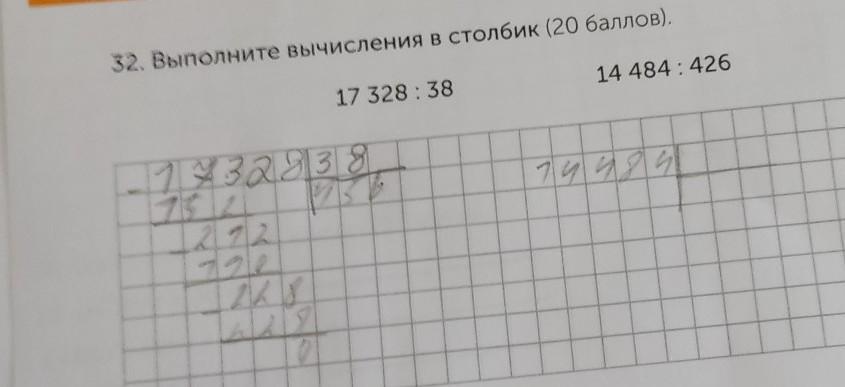 32. Выполните вычисления в столбик (20 баллов).
17 328 : 38
14 484 : 426
- 17328 38
152 456
- 212
190
- 228
228
0
14484